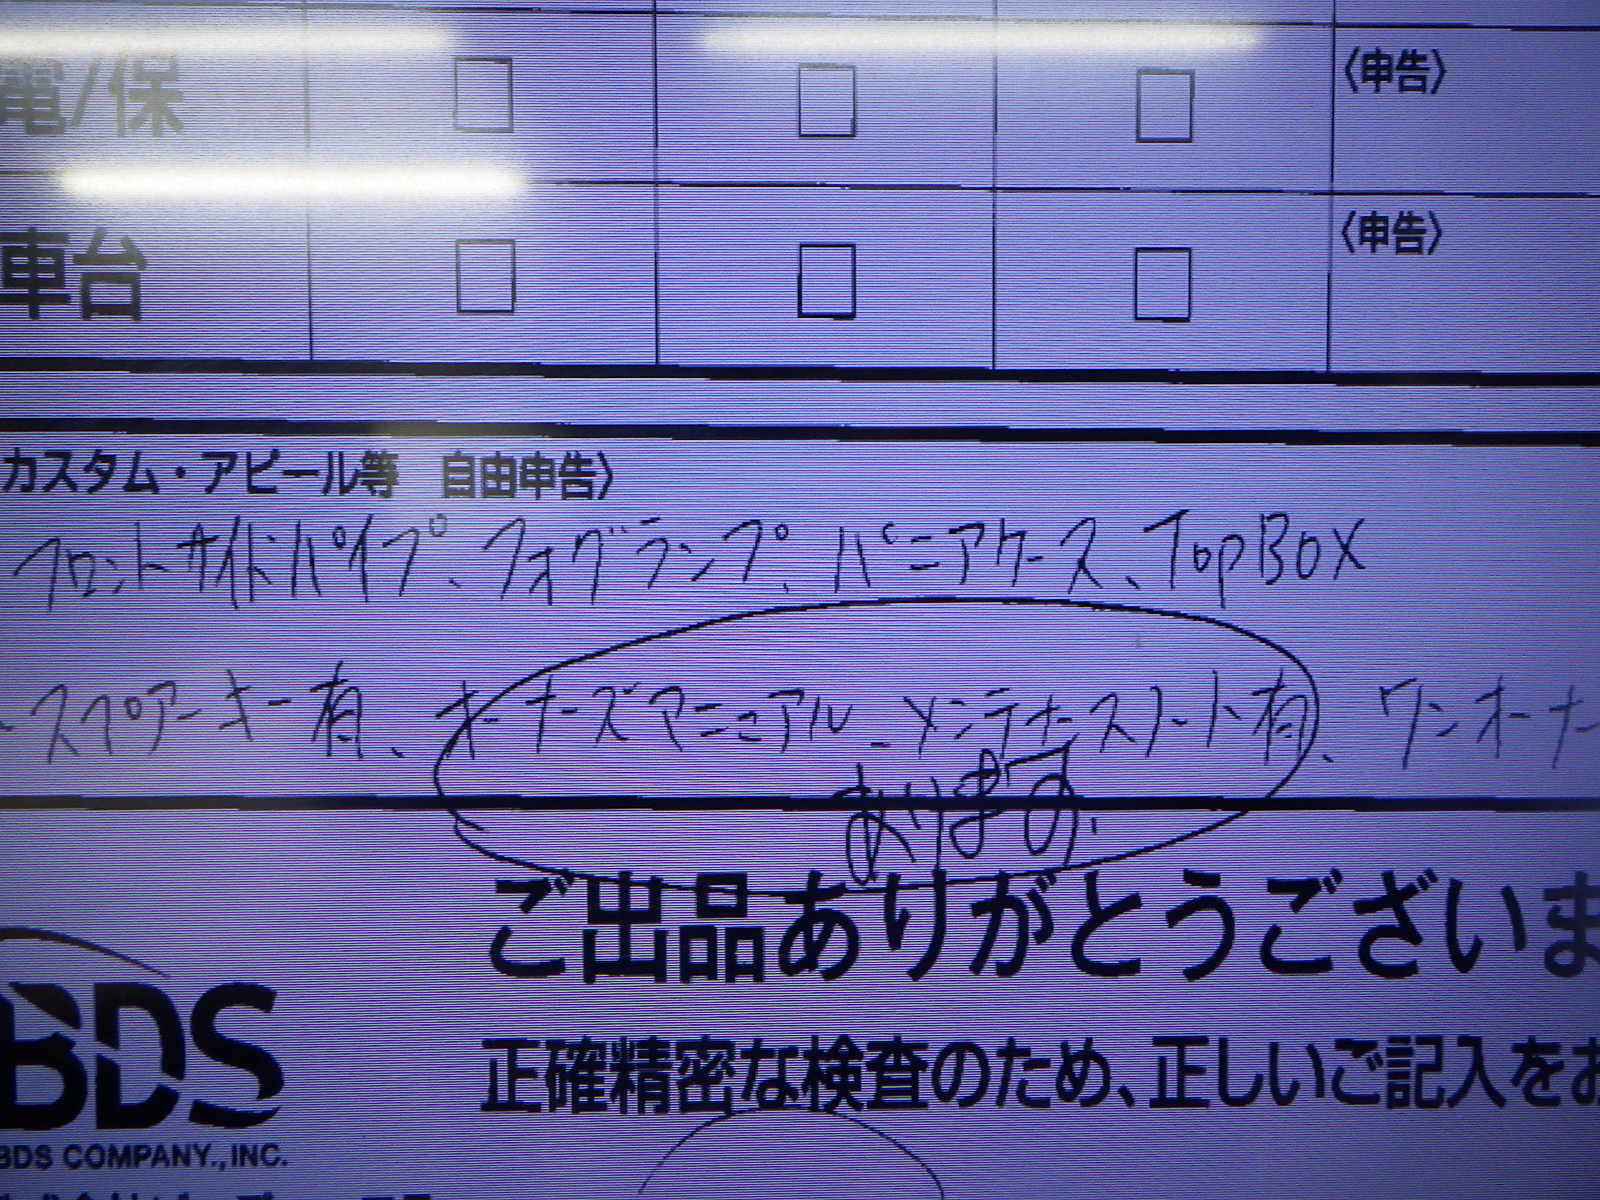 電/保 □ □ □ 〈申告〉
車台 □ □ □ 〈申告〉
カスタム・アピール等 自由申告〉
フロントサイドパイプ、フォグランプ、パニアケース、TopBOX
スペアーキー有、オーナーズマニュアル、メンテナースノート有、ワンオーナー
あります。
ご出品ありがとうございま
正確精密な検査のため、正しいご記入をお
BDS
BDS COMPANY.,INC.